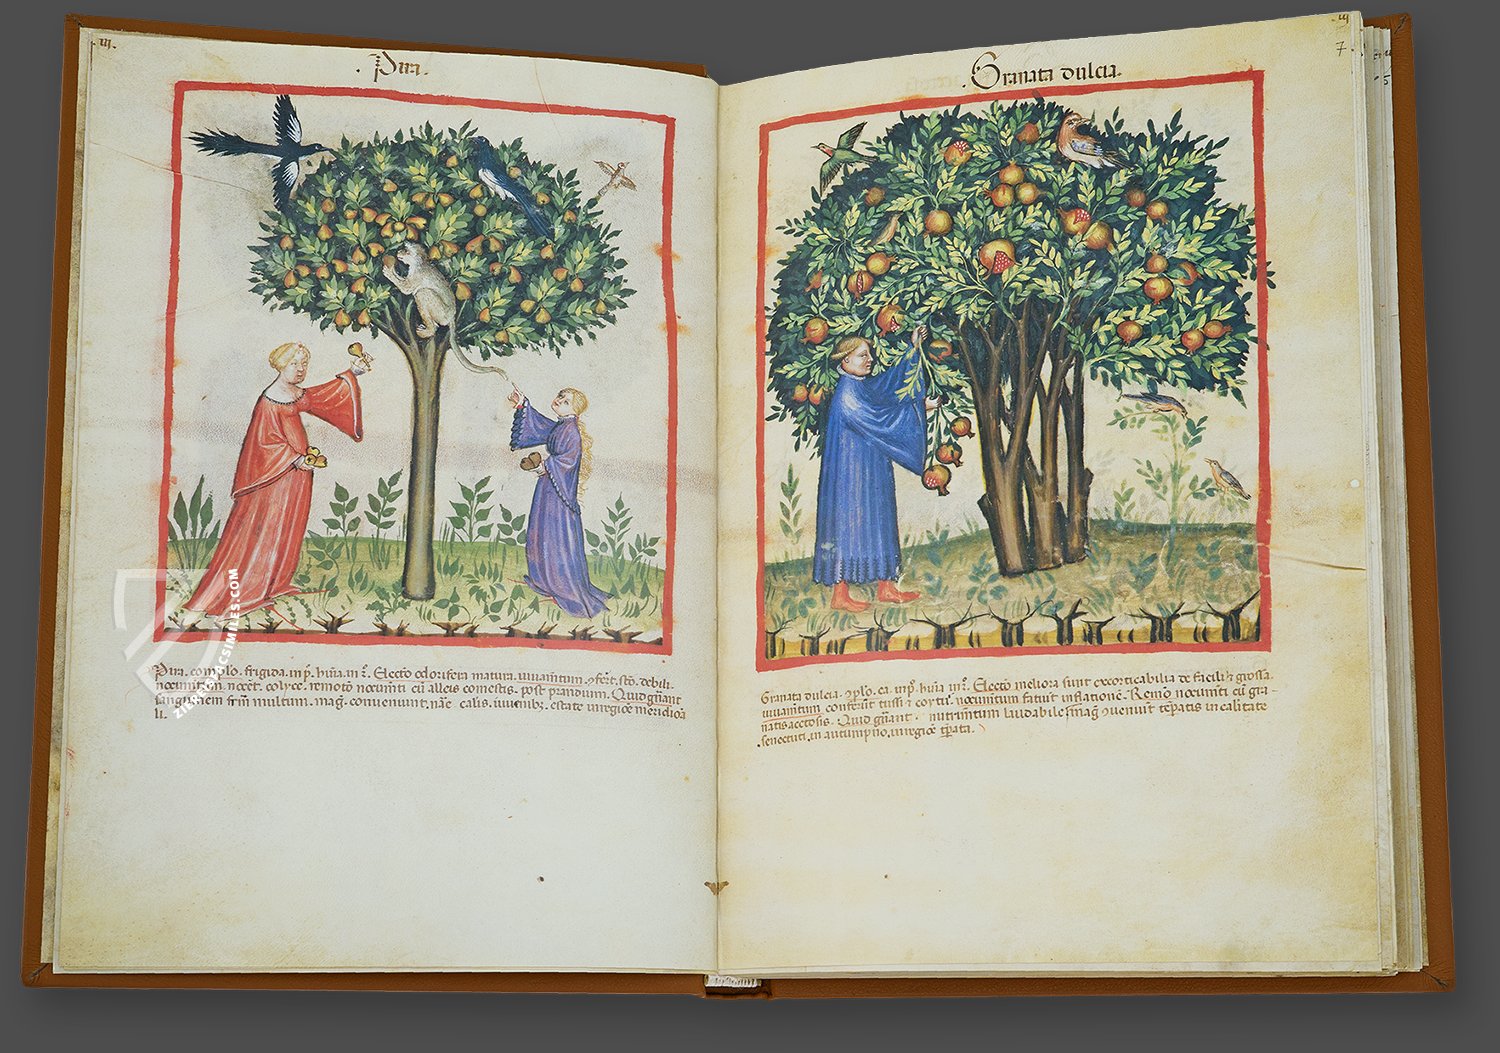 .III.
.Pira.
Pira. complo. frigida. in p̊. hu̅a. in ẜ. Electo odorifera matura. iuuam̅tum. ꝯfert. sto̅. debili.
nocum̅tum. noce̅t. colyce. remoto̅ nocum̅ti cu̅ alleis comestis. post prandium. Quid gn̅ant
sanguinem frm̅ multum. mag̅. conueniunt. calis. iuuenib;. estate in regio̅e meridioa
li.
III
7
5
.Granata dulcia.
Granata dulcia. ꝯplo. ca. in p̊. hu̅a in ẜ. Electo meliora sunt excorticabilia de facili ⁊ grossa.
iuuam̅tum conferu̅t tussi ⁊ coytui. nocum̅tum faciu̅t inflatione̅. Remo nocum̅ti cu̅ gra-
natis acetosis. Quid gn̅ant. nutrim̅tum laudabile ꝯueniu̅t te̅patis in calitate
senectuti. in autumpno. in regio̅e te̅pata.
ZIEREIS FACSIMILES.COM